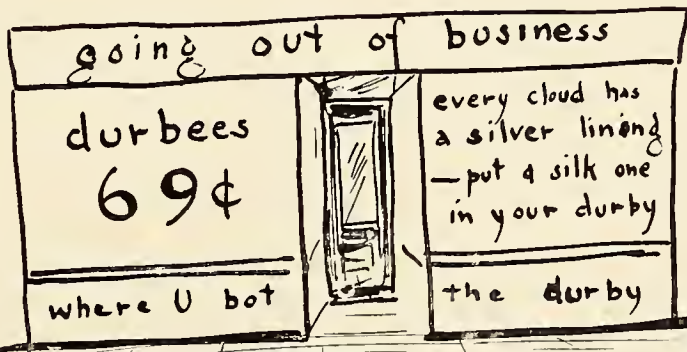 going out of business
durbees
69¢
where U bot
every cloud has
a silver lining
—put a silk one
in your durby
the durby